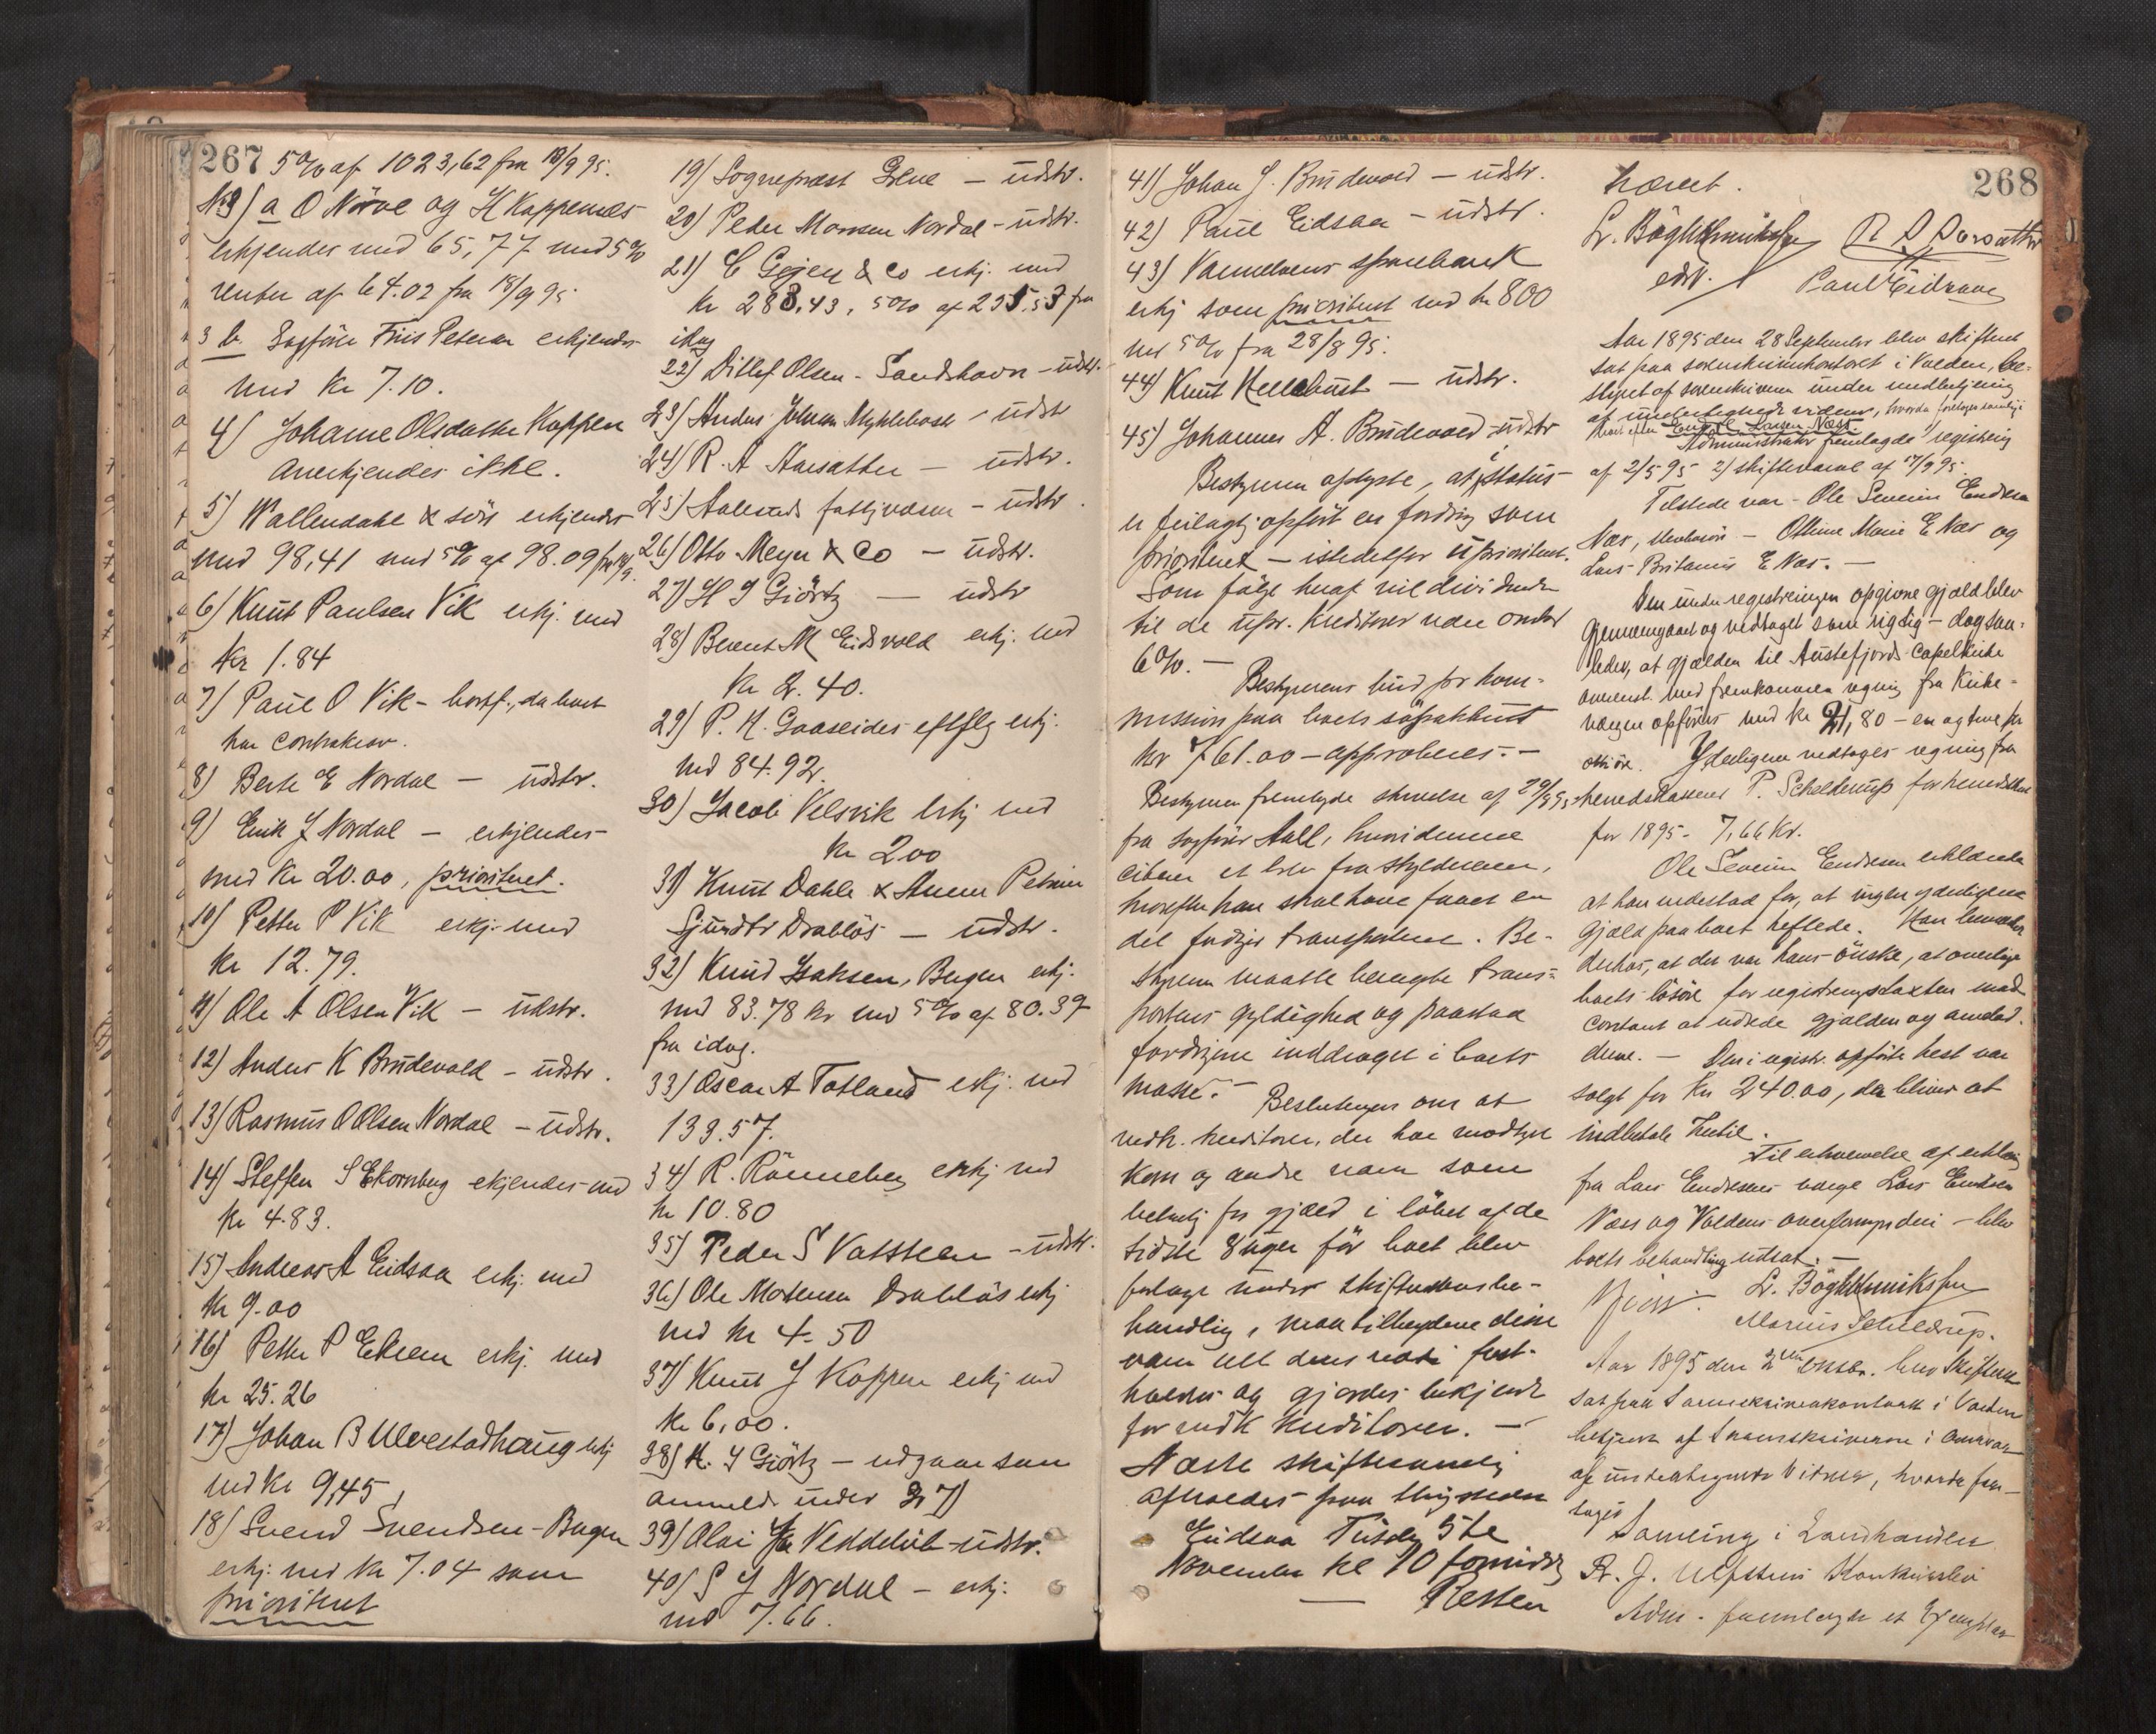 267 5% af 1023,62 fra 18/9 95.
No 3) a O Nørve og H Kappenes
erkjendes med 65,77 med 5%
renter af 64.02 fra 18/9 95
3 b. Sagfører Friis Petersen erkjendes
med Kr 7.10.
4) Johanne Olsdatter Koppen
anerkjendes ikke.
5) Wallendahl & søn erkjendes
med 98,41 med 5% af 98.09 fra 18/9.
6) Knut Paulsen Vik erkj. med
Kr 1.84
7) Paul O Vik - bortf., da boet
har contrakrav.
8) Berte E Nordal — udstr.
9) Erik J Nordal — erkjendes
med Kr 20.00, prioritert.
10) Petter P Vik erkj. med
Kr 12.79.
11) Ole A Olsen Vik — udstr.
12) Anders K Brudevold - udstr.
13) Rasmus O Olsen Nordal - udstr.
14) Steffen S Ekornberg erkjendes med
Kr 4.83.
15) Andreas A Eidsaa erkj. med
Kr 9.00
16) Petter P Ekrem erkj. med
Kr 25.26
17) Johan B Ulvestadhaug erkj
med Kr 9,45
18) Svend Svendsen - Bugen
erkj. med Kr 7.04 som
prioritert
19) Sogneprest Greve — udstr.
20) Peder Monsen Nordal - udstr.
21) C Gejer & Co erkj. med
Kr 288,43, 5% af 255,53 fra
idag
22) Ditlef Olsen - Sandshavn - udstr.
23) Anders Johan Myklebost - udstr
24) R. A Aarsæther — udstr.
25) Aalesunds fattigvæsen - udstr.
26) Otto Meyer & Co — udstr.
27) H J Giørtz — udstr
28) Berent M Eidsvold erkj. med
Kr 2.40.
29) P. H. Gaaseides eftflg erkj.
med 84.92.
30) Jacob Velsvik erkj med
Kr 2.00
31) Knut Dahle & Anne Petrine
Sjurdtr Drabløs — udstr.
32) Knud Isaksen, Bugen erkj.
med 83.78 kr med 5% af 80.39
fra idag.
33) Oscar A Totland erkj. med
133.57.
34) R. Rønneberg erkj med
Kr 10.80
35) Peder S Vatsteen - udstr.
36) Ole Mortensen Drabløs erkj
med Kr 4.50
37) Knut J Koppen erkj med
Kr 6,00.
38) H. J Giørtz — udgaar som
anmeldt under 27)
39) Olai Veddelub - udstr.
40) S J Nordal — erkj.
med 7.66.
41) Johan J. Brudevold — udstr.
42) Paul Eidsaa — udstr.
43) Vannelvens sparebank
erkj som prioritert med kr 800
med 5% fra 28/8 95.
44) Knut Hellebust — udstr.
45) Johannes A. Brudevold - udstr
Bestyreren oplyste, at i status
er feilagtig opført en fordring som
prioritert — istedetfor uprioritert.
Som følge heraf vil dividenden
til de upr. kreditorer være omtr
6%. —
Bestyrerens bud for kom-
mission paa boets løsøreauktion
kr 761.00 — approberes. —
Bestyreren fremlagde skrivelse af 20/9 95
fra sagfører Aall, hvori denne
citerer et brev fra skyldneren,
hvorefter han skal have faaet en
del fordringer transporteret. Be-
styreren maatte benegte trans-
portens gyldighed og paastaa
fordringene inddraget i boets
masse. —
Beslutningen om at
vedk. kreditorer, der har modtaget
korn og andre varer som
betaling for gjæld i løbet af de
sidste 8 uger før boet blev
foretaget under skifterettens be-
handling, maa tilbagelevere disse
varer ell deres værdi fast-
holdes og gjøres bekjendt
for vedk kreditorer. —
Næste skiftesamling
afholdes paa thingstedet
Eidsaa Tirsdag 5te
November kl 10 formiddag
Retten
268
hævet.
L. Bøgh Henrikssen R A Aarsæther
edsv. Paul Eidsaa
Aar 1895 den 28 September blev skifteret
sat paa sorenskriverkontoret i Volden, be-
styret af sorenskriveren under medbetjening
af undertegnede vidner, hvorda foretoges samling
i boet efter Endre Larsen Næss
Administrator fremlagde 1) registrering
af 2/5 95 2) skiftevarsel af 17/9 95.
Tilstede var - Ole Severin Endresen
Næs, — Oline Marie E Næs og
Lars Britanus E Næs. —
Den under registreringen opgivne gjæld blev
gjennemgaaet og vedtaget som rigtig - dog saa-
ledes, at gjælden til Austefjords Capelkirke
overenst. med fremkommen regning fra Kirke-
vergen opføres med Kr 21,80 — en og tyve kr
otti øre. Yderligere vedtoges regning fra
herredskasserer P. Schelderup for herredsskat
for 1895 - 7,66 Kr.
Ole Severin Endresen erklærede
at han indestod for, at ingen yderligere
gjæld paa boet heftede. Han bemærkede
derhos, at det var hans ønske, at overtage
boets løsøre for registreringstaxten mod
contant at udrede gjælden og arvelod-
dene. — Den i registr. opførte hest var
solgt for Kr 240.00, der bliver at
indbetale hertil.
Til erhvervelse af erklæring
fra Lars Endresens verge Lars Endresen
Næss og Voldens overformynderi — blev
boets behandling udsat. —
L. Bøgh Henrikssen
Marius Schelderup.
Aar 1895 den 2den Oktbr. blev Skifteret
sat paa Sorenskriverkontoret i Volden
betjent af Sorenskriveren i Overvær
af undertegnede Vidner, hvorda fore-
toges
Samling i Landhandler
R. J. Ulfsteins Konkursbo
Adm. fremlagde et Exemplar